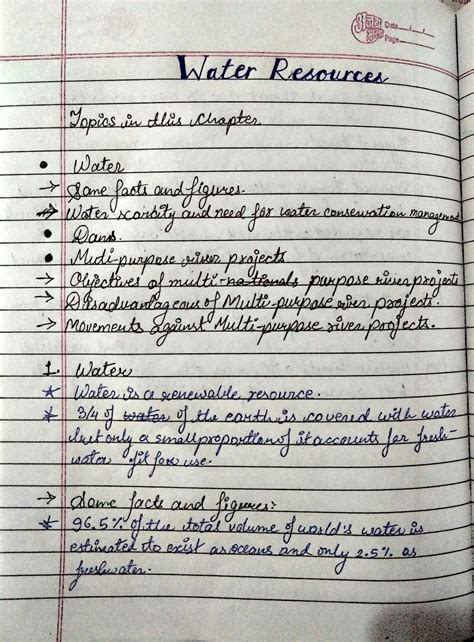 Date
Page
Water Resources
Topics in this chapter
• Water
→ Some facts and figures.
→ Water scarsity and need for water conservation management
• Dams.
• Multi-purpose river projects
→ Objectives of multi-nationals purpose river projects
→ Disadvantageous of Multi-purpose river projects.
→ Movements against Multi-purpose river projects.
1. Water
* Water is a renewable resource.
* 3/4 of water of the earth is covered with water
but only a small proportion of it accounts for fresh-
water fit for use.
→ Some facts and figures:
* 96.5% of the total volume of world's water is
estimated to exist as oceans and only 2.5% as
freshwater.